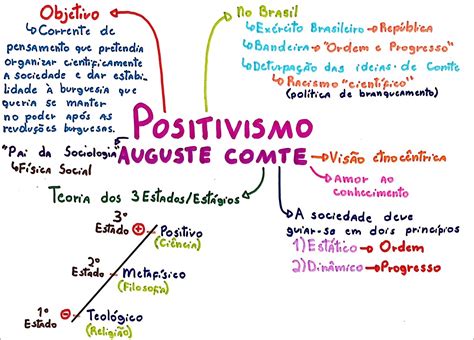 Objetivo
↳Corrente de
pensamento que pretendia
organizar cientificamente
a sociedade e dar estabi-
lidade à burguesia que
queria se manter
no poder após as
revoluções burguesas.
No Brasil
↳Exército Brasileiro→República
↳Bandeira→"Ordem e Progresso"
↳Deturpação das ideias de Comte
↳Racismo "científico"
(política de branqueamento)
POSITIVISMO
AUGUSTE COMTE
"Pai da Sociologia"
↳Física Social
→Visão etnocêntrica
→Amor ao
conhecimento
→A sociedade deve
guiar-se em dois princípios
1)Estático→Ordem
2)Dinâmico→Progresso
Teoria dos 3 Estados/Estágios
3º
Estado ⊕ Positivo
(Ciência)
2º
Estado Metafísico
(Filosofia)
1º ⊖
Estado Teológico
(Religião)